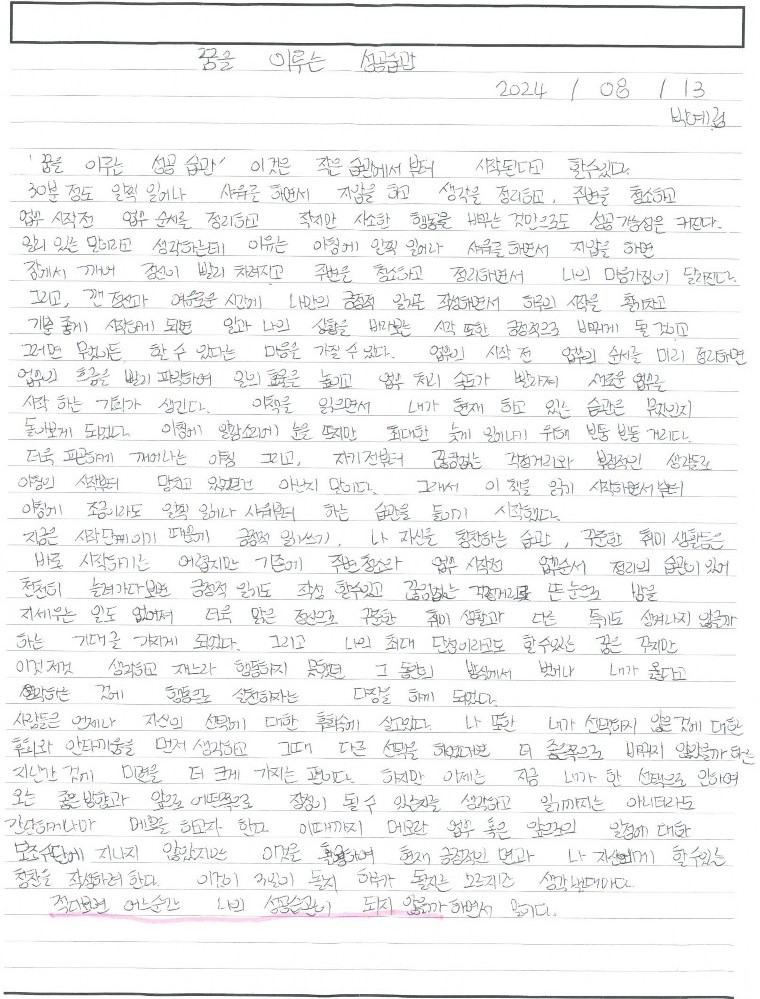 꿈을 이루는 성공습관
2024 / 08 / 13
박예림
'꿈을 이루는 성공 습관' 이것은 작은 습관에서 부터 시작된다고 할수있다.
30분 정도 일찍 일어나 샤워를 하면서 지압을 하고 생각을 정리하고, 주변을 청소하고
업무 시작전 업무 순서를 정리하고 작지만 사소한 행동을 바꾸는 것만으로도 성공 가능성은 커진다.
일리 있는 말이라고 생각하는데 이유는 아침에 일찍 일어나 샤워를 하면서 지압을 하면
잠에서 깨어 정신이 빨리 차려지고 주변을 청소하고 정리하면서 나의 마음가짐이 달라진다.
그리고, 깬 정신과 여유로운 시간에 나만의 긍정적 일기를 작성하면서 하루의 시작을 활기차고
기분 좋게 시작하게 되면 일과 나의 상황을 바라보는 시각 또한 긍정적으로 바뀌게 될 것이고
그러면 무엇이든 할 수 있다는 마음을 가질 수 있다. 업무의 시작 전 업무의 순서를 미리 정리하면
업무의 흐름을 빨리 파악하여 일의 효율은 높이고 업무 처리 속도가 빨라져 새로운 업무를
시작 하는 기회가 생긴다. 이책을 읽으면서 내가 현재 하고 있는 습관은 무엇인지
돌아보게 되었다. 아침에 알람소리에 눈을 뜨지만 최대한 늦게 일어나기 위해 빈둥 빈둥 거리다.
더욱 피곤하게 깨어나는 아침 그리고, 자기전부터 끊임없는 걱정거리와 부정적인 생각들로
아침의 시작부터 망치고 있었던건 아닌지 말이다. 그래서 이 책을 읽기 시작하면서 부터
아침에 조금이라도 일찍 일어나 샤워부터 하는 습관을 들이기 시작했다.
지금은 시작단계이기 때문에 긍정적 일기쓰기, 나 자신을 칭찬하는 습관, 꾸준한 취미 생활등은
바로 시작하기는 어렵지만 기존에 주변 청소와 업무 시작전 업무순서 정리의 습관이 있어
천천히 늘려가다보면 긍정적 일기도 작성 할수있고 끊임없는 걱정거리로 뜬 눈으로 밤을
지새우는 일도 없어져 더욱 맑은 정신으로 꾸준한 취미 생활과 다른 특기도 생겨나지 않을까
하는 기대를 가지게 되었다. 그리고 나의 최대 단점이라고도 할수있는 꿈은 꾸지만
이것 저것 생각하고 재느라 행동하지 못했던 그 동안의 방식에서 벗어나 내가 옳다고
생각하는 것에 행동으로 실천하자는 다짐을 하게 되었다.
사람들은 언제나 자신의 선택에 대한 후회속에 살고있다. 나 또한 내가 선택하지 않은 것에 대한
후회와 안타까움을 먼저 생각하고 그때 다른 선택을 하였다면 더 좋은쪽으로 바뀌지 않았을까 하는
지나간 것에 미련을 더 크게 가지는 편이다. 하지만 이제는 지금 내가 한 선택으로 인하여
오는 좋은 방향과 앞으로 어떤쪽으로 장점이 될 수 있는지를 생각하고 일기까지는 아니더라도
간략하게나마 메모를 하고자 한다. 이때까지 메모란 업무 혹은 앞으로의 일정에 대한
보조수단에 지나지 않았지만 이것을 활용하여 현재 긍정적인 면과 나 자신에게 할수있는
칭찬을 작성하려 한다. 이것이 주일이 될지 하루가 될지는 모르지만 생각날때마다.
적다보면 어느순간 나의 성공습관이 되지 않을까 하면서 말이다.